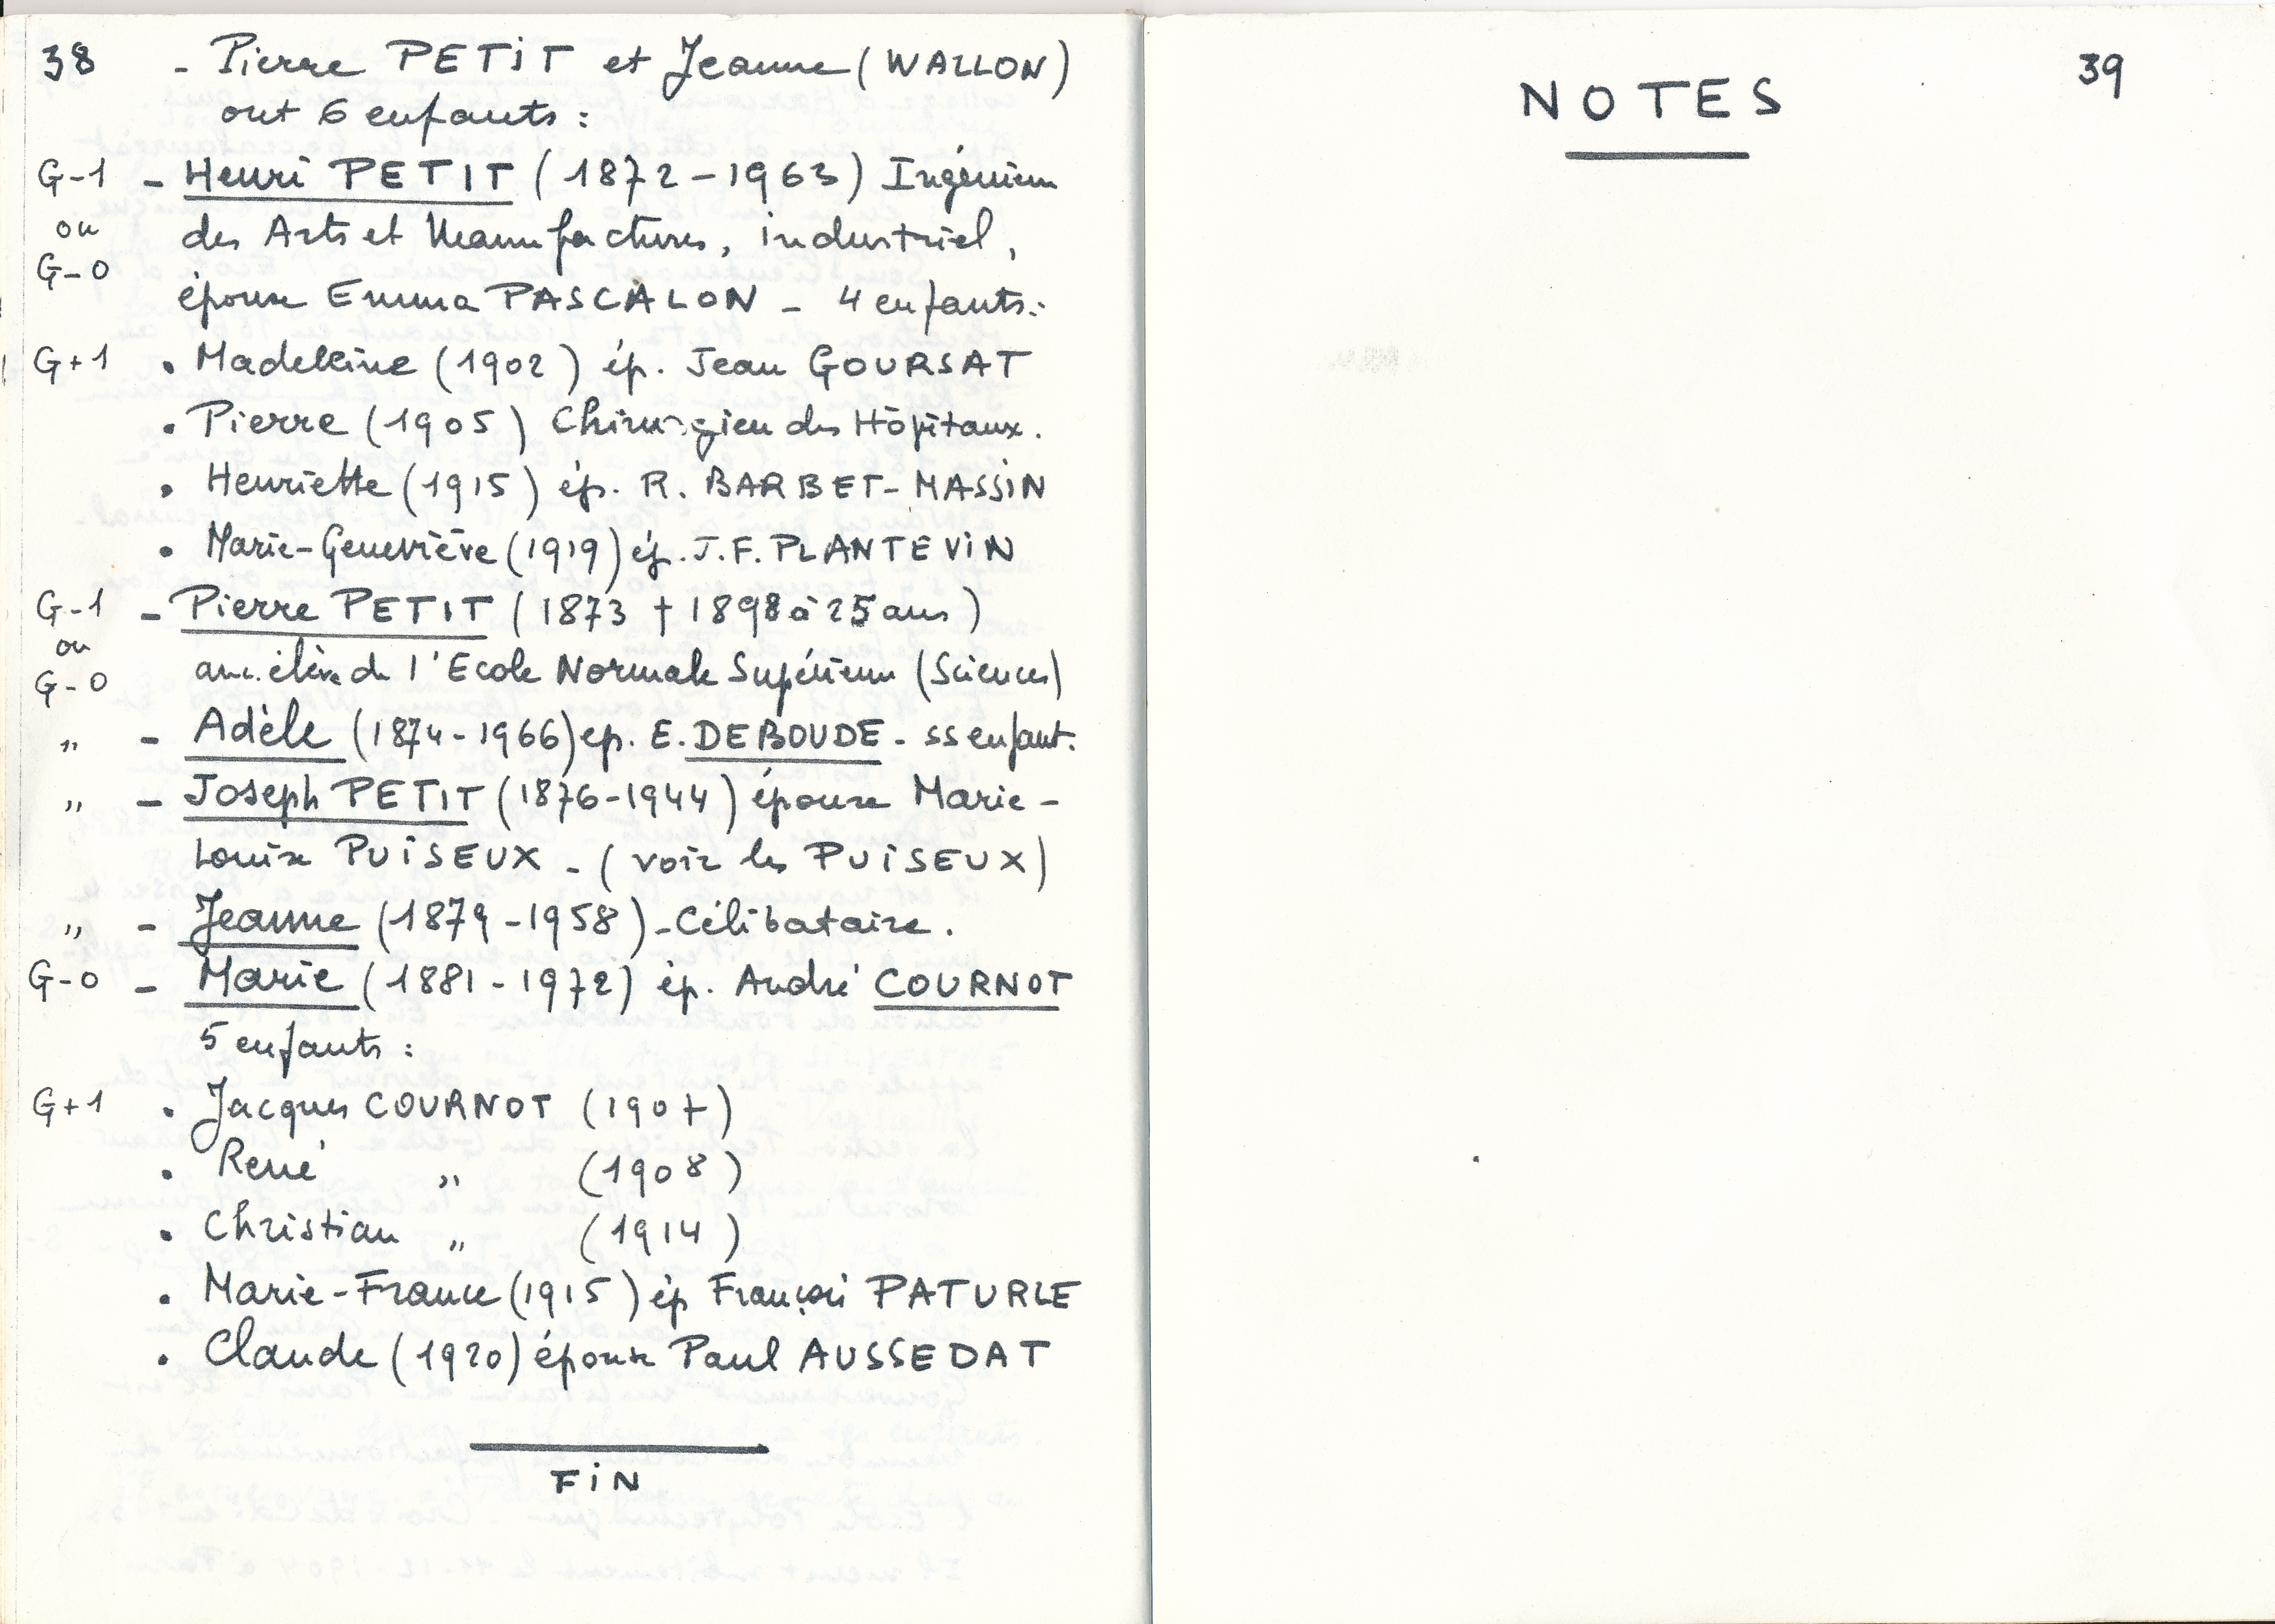 38 - Pierre PETIT et Jeanne (WALLON)
ont 6 enfants :
G-1 - Henri PETIT (1872-1963) Ingénieur
ou des Arts et Manufactures, industriel,
G-0
épouse Emma PASCALON - 4 enfants :
G+1 • Madeleine (1902) ép. Jean GOURSAT
• Pierre (1905) Chirurgien des Hôpitaux.
• Henriette (1915) ép. R. BARBET-MASSIN
• Marie-Geneviève (1919) ép. J.F. PLANTEVIN
G-1 - Pierre PETIT (1873 † 1898 à 25 ans)
ou
G-0 anc. élève de l'Ecole Normale Supérieure (Sciences)
" - Adèle (1874-1966) ep. E. DEBOUDE - ss enfant.
" - Joseph PETIT (1876-1944) épouse Marie-
Louise PUISEUX - (voir les PUISEUX)
" - Jeanne (1879-1958) - Célibataire.
G-0 - Marie (1881-1972) ép. André COURNOT
5 enfants :
G+1 • Jacques COURNOT (1907)
• René " (1908)
• Christian " (1914)
• Marie-France (1915) ép François PATURLE
• Claude (1920) épouse Paul AUSSEDAT
FIN
39
NOTES